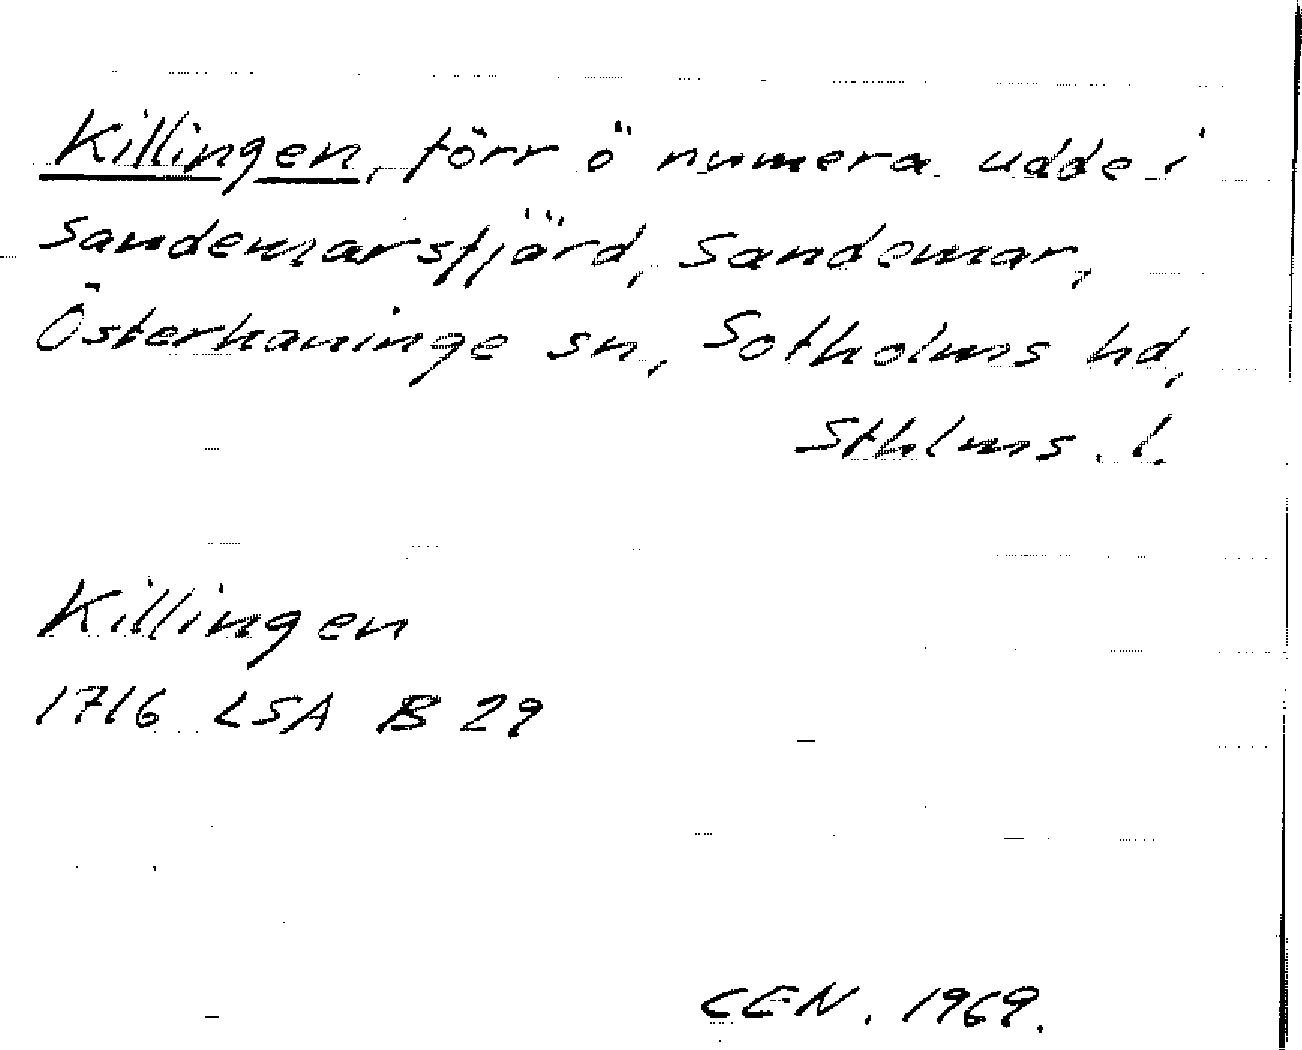 Killingen, förr ö numera udde i
Sandemarsfjärd, Sandemar,
Österhaninge sn, Sotholms hd,
Sthlms. l.
Killingen
1716 LSA B 29
CEN. 1969.